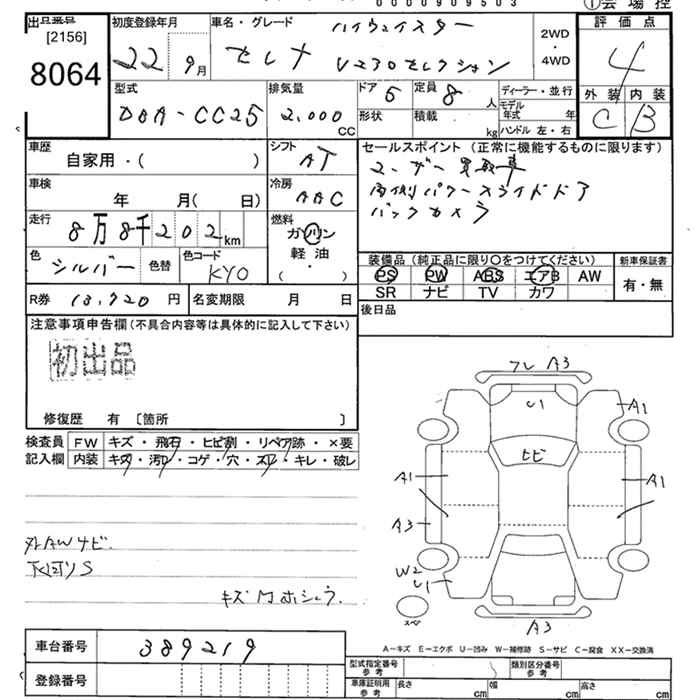 0000909503
①会場控
出品番号
[2156]
8064
初度登録年月
22年9月
車名・グレード
ハイウェイスター
セレナ Vゴセレクション
2WD
・
4WD
評価点
4
外装 内装
C B
型式
DBA-CC25
排気量
2,000
CC
ドア 5
定員 8 人
形状
積載 kg
ディーラー・並行
モデル年式 年
ハンドル 左・右
車歴
自家用・( )
シフト
AT
セールスポイント(正常に機能するものに限ります)
ユーザー買取車
両側パワースライドドア
バックカメラ
車検
年 月( 日)
冷房
AAC
走行
8万8千202km
燃料
ガソリン
軽油
( ・ )
色
シルバー
色替
色コード
KY0
装備品(純正品に限り〇をつけてください)
新車保証書
PS PW ABS エアB AW
SR ナビ TV カワ
有・無
R券 13,720円
名変期限 月 日
後日品
注意事項申告欄(不具合内容等は具体的に記入して下さい)
初出品
修復歴 有 〔箇所 〕
検査員
記入欄
FW キズ・飛石・ヒビ割・リペア跡・×要
内装 キズ・汚れ・コゲ・穴・スレ・キレ・破レ
外AWサビ
下回りS
キズ凹ホシュウ.
フレ A3
U1
A1
ヒビ
A1
A1
A3
W2
U1
スペア
A3
車台番号 389219
登録番号
A-キズ E-エクボ U-凹み W-補修跡 S-サビ C-腐食 XX-交換済
型式指定番号
参考
類別区分番号
参考
車庫証明用
参考
長さ cm
幅 cm
高さ cm